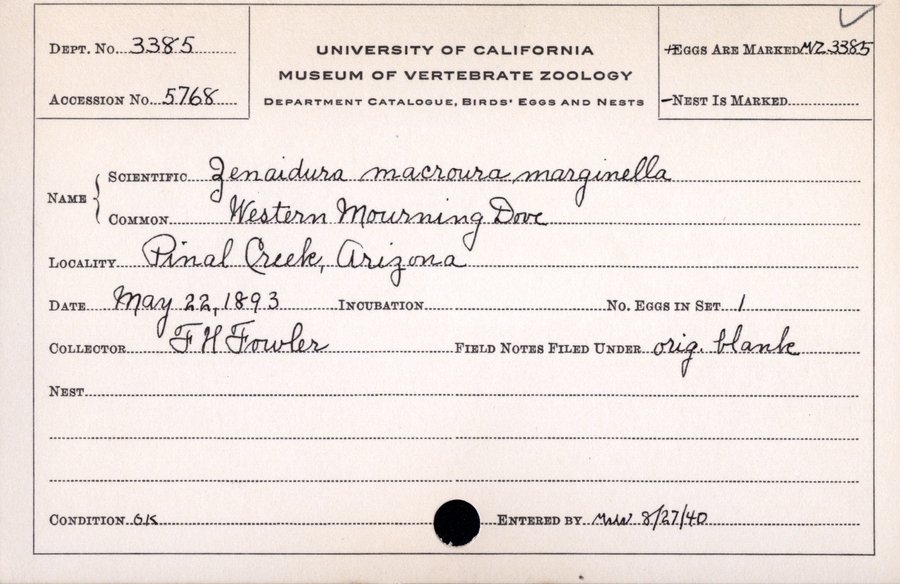 Dept. No. 3385
Accession No. 5768
UNIVERSITY OF CALIFORNIA
MUSEUM OF VERTEBRATE ZOOLOGY
Department Catalogue, Birds' Eggs and Nests
+Eggs Are Marked MVZ 3385
-Nest Is Marked
Name
Scientific Zenaidura macroura marginella
Common Western Mourning Dove
Locality Pinal Creek, Arizona
Date May 22, 1893 Incubation No. Eggs in Set 1
Collector F H Fowler Field Notes Filed Under orig. blank
Nest
Condition OK Entered by 8/27/40